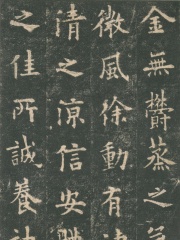 金無鬱蒸之
微風徐動有
清之涼信安
之佳所誠養